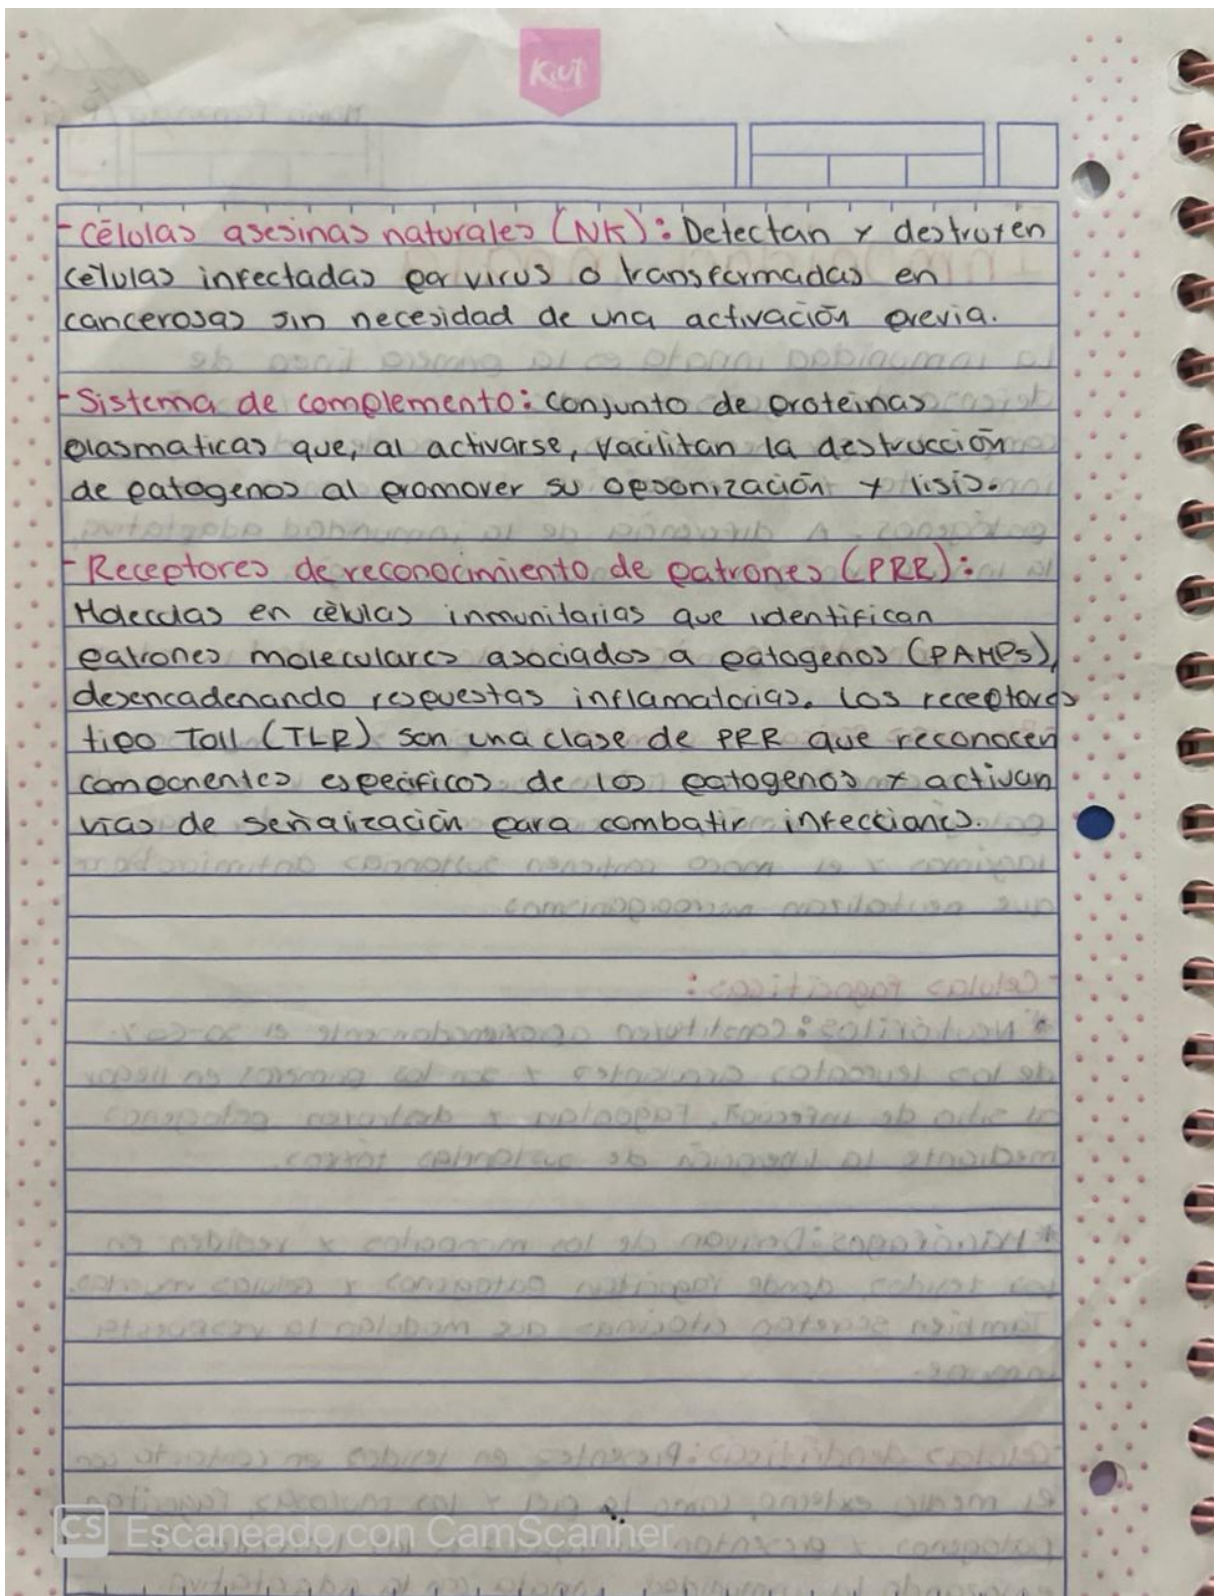 Kiut
- Células asesinas naturales (NK): Detectan y destruyen
células infectadas por virus o transformadas en
cancerosas sin necesidad de una activación previa.
- Sistema de complemento: conjunto de proteinas
plasmaticas que, al activarse, facilitan la destrucción
de patogenos al promover su opsonización y lisis.
- Receptores de reconocimiento de patrones (PRR):
Moleculas en células inmunitarias que identifican
patrones moleculares asociados a patogenos (PAMPs),
desencadenando respuestas inflamatorias. Los receptores
tipo Toll (TLR) son una clase de PRR que reconocen
componentes especificos de los patogenos y activan
vias de señalización para combatir infecciones.
CS Escaneado con CamScanner